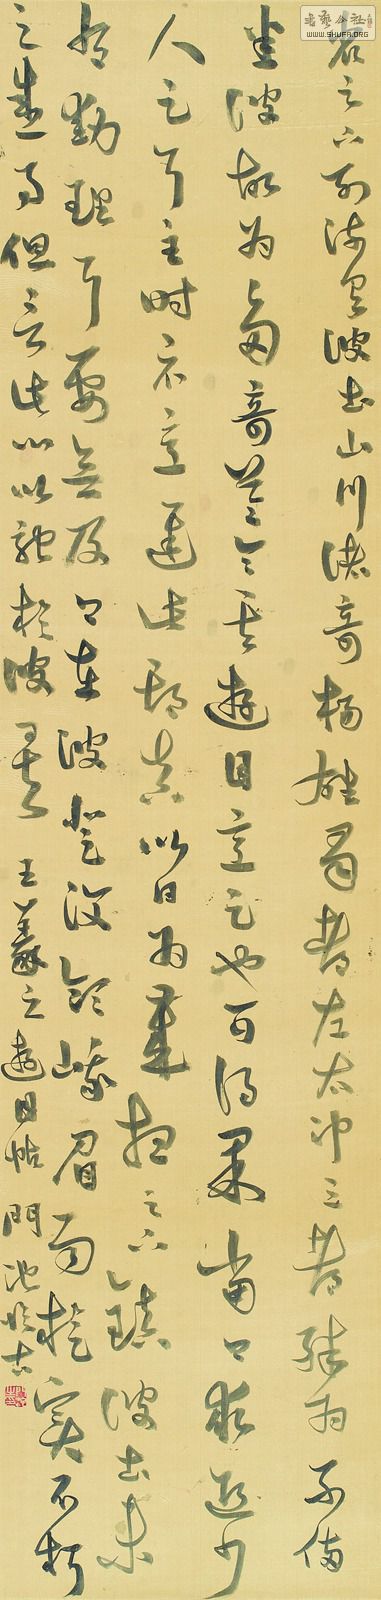 省足下別疏具彼土山川諸奇揚雄蜀都左太沖三都殊為不備
悉彼故為多奇益令其遊目意足也可得果當卿求迎少
人足耳至時示意遲此期真以日為歲想足下鎮彼土未
有動理耳要欲及卿在彼登汶領峨眉而旋實不朽
之盛事但言此心以馳於彼矣 王羲之遊目帖
書藝公社
WWW.SHUFA.ORG